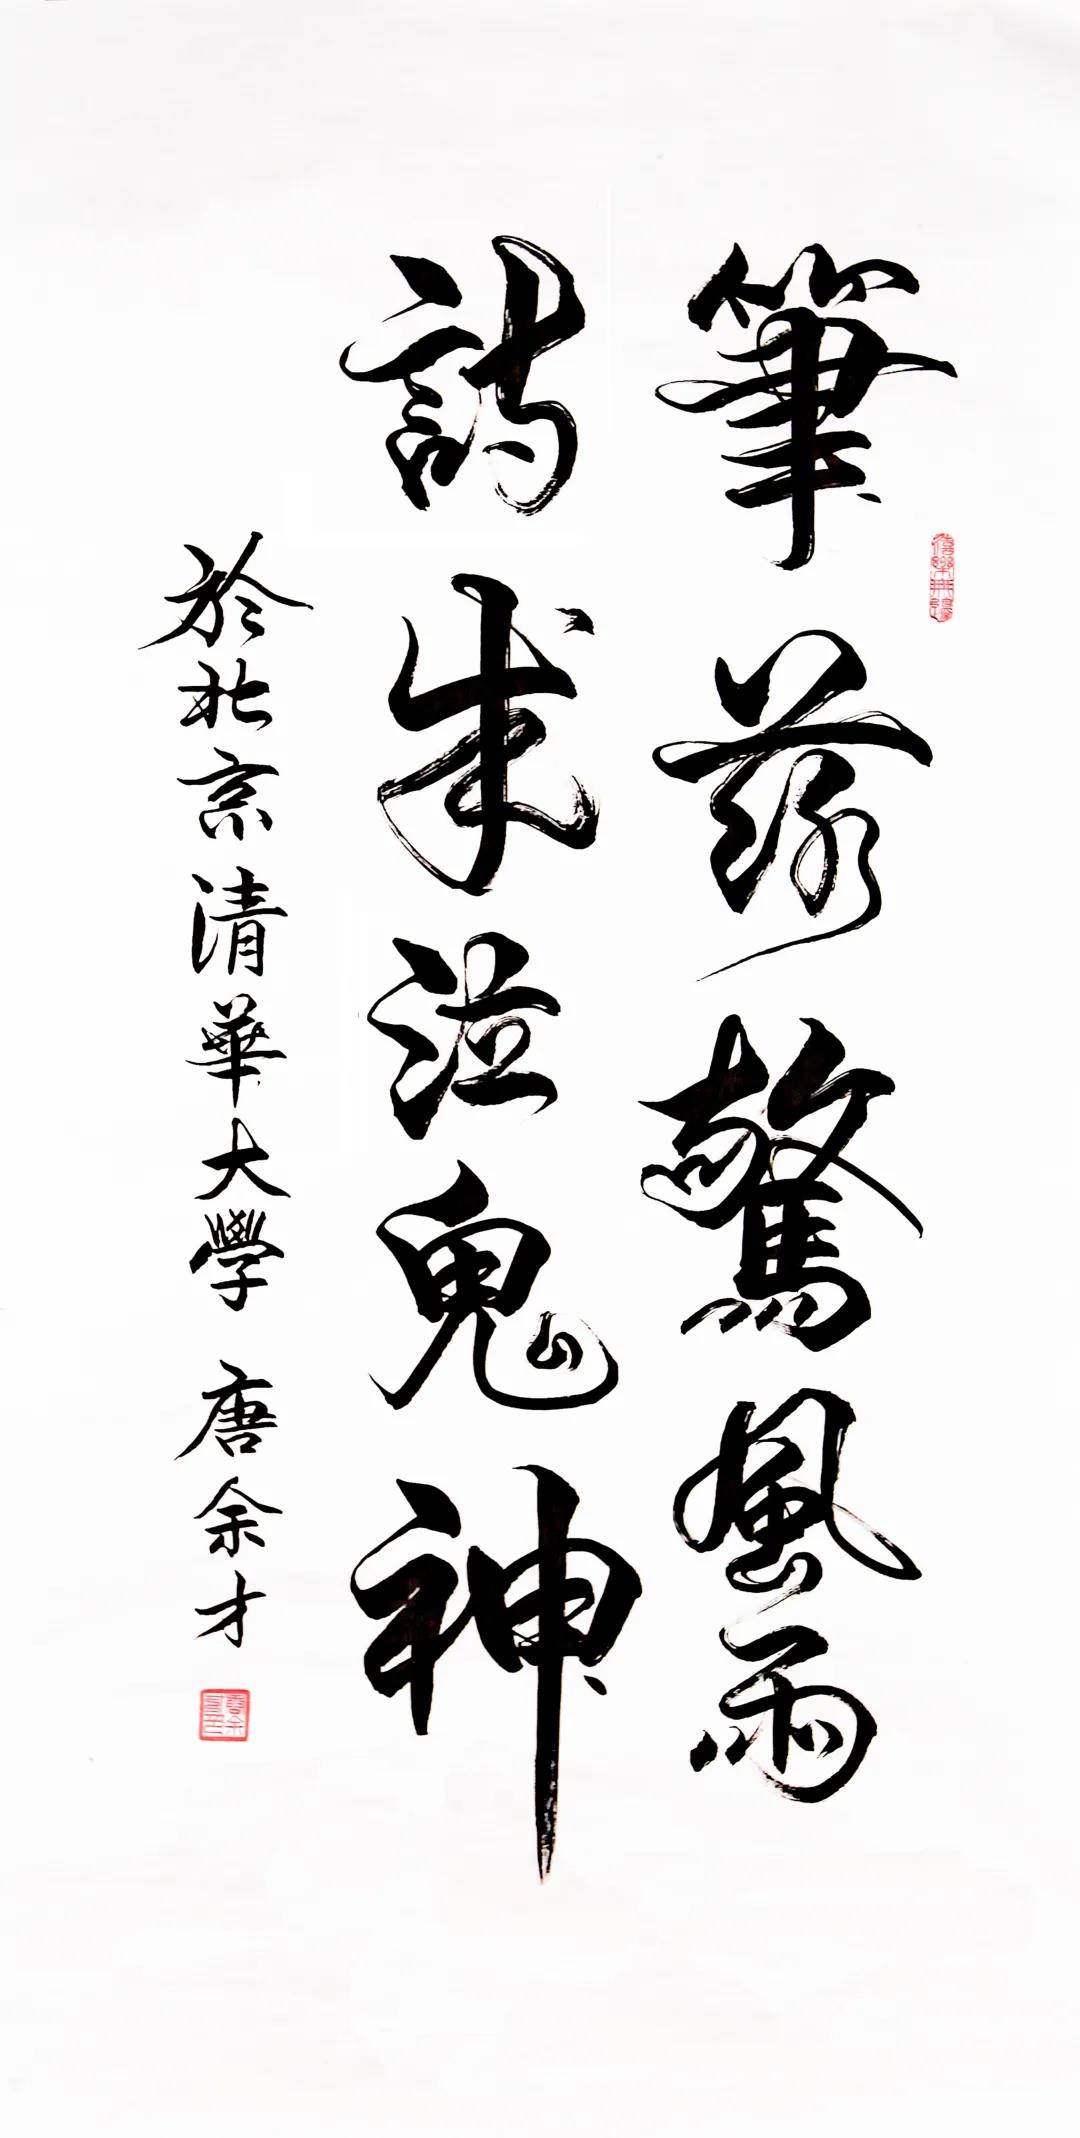 筆落驚風雨
詩成泣鬼神
於北京清華大學 唐余才